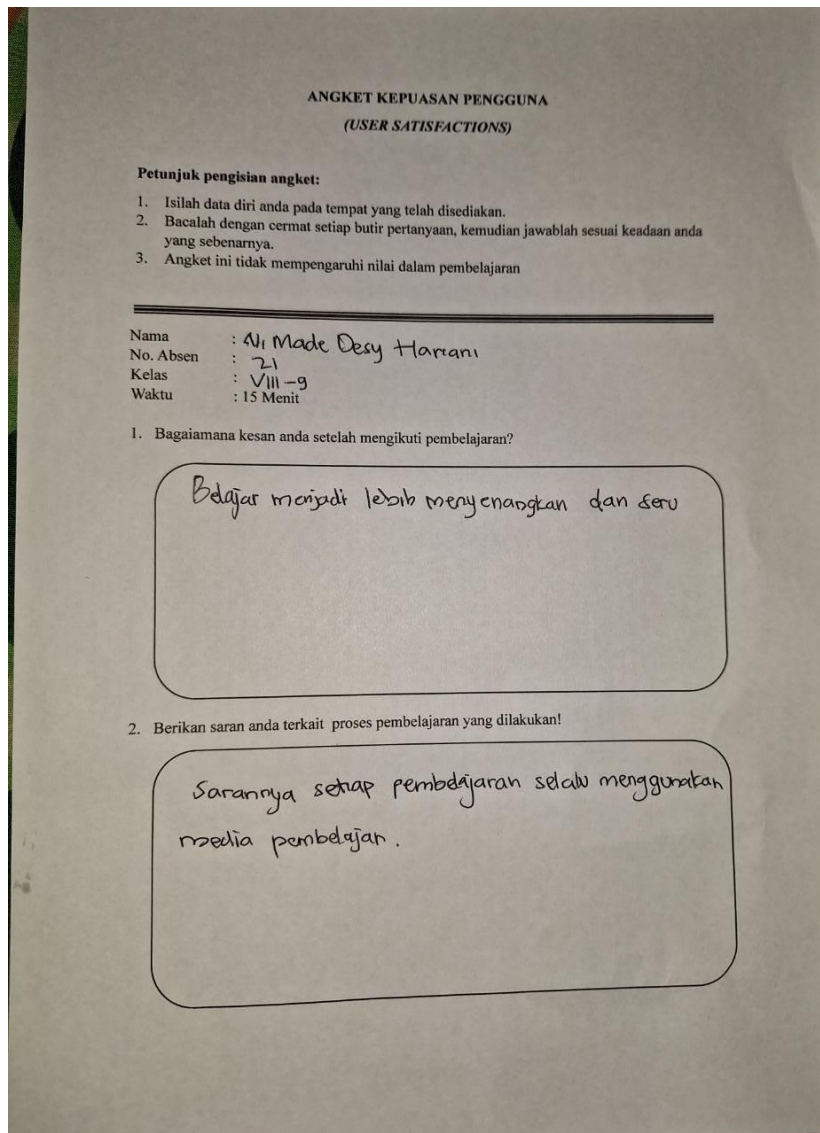 ANGKET KEPUASAN PENGGUNA
(USER SATISFACTIONS)
Petunjuk pengisian angket:
1. Isilah data diri anda pada tempat yang telah disediakan.
2. Bacalah dengan cermat setiap butir pertanyaan, kemudian jawablah sesuai keadaan anda
yang sebenarnya.
3. Angket ini tidak mempengaruhi nilai dalam pembelajaran
Nama : Ni Made Desy Hariani
No. Absen : 21
Kelas : VIII-9
Waktu : 15 Menit
1. Bagaiamana kesan anda setelah mengikuti pembelajaran?
Belajar menjadi lebih menyenangkan dan seru
2. Berikan saran anda terkait proses pembelajaran yang dilakukan!
Sarannya setiap pembelajaran selalu menggunakan
media pembelajan.